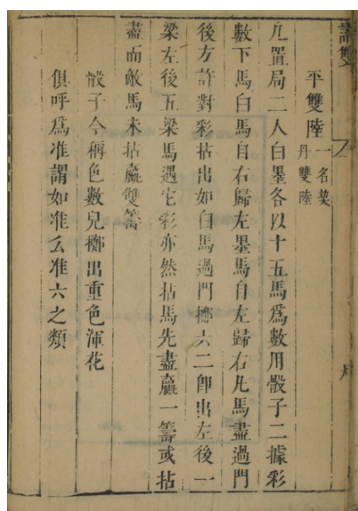 譜雙
平雙陸一名契丹雙陸
凡置局二人白墨各以十五馬爲數用骰子二據彩
數下馬白馬自右歸左墨馬自左歸右凡馬盡過門
後方許對彩拈出如白馬過門擲六二卽出左後一
梁左後五梁馬遇它彩亦然拈馬先盡贏一籌或拈
盡而敵馬未拈贏雙籌
骰子今稱色數兒擲出重色渾花
俱呼爲准謂如准么准六之類